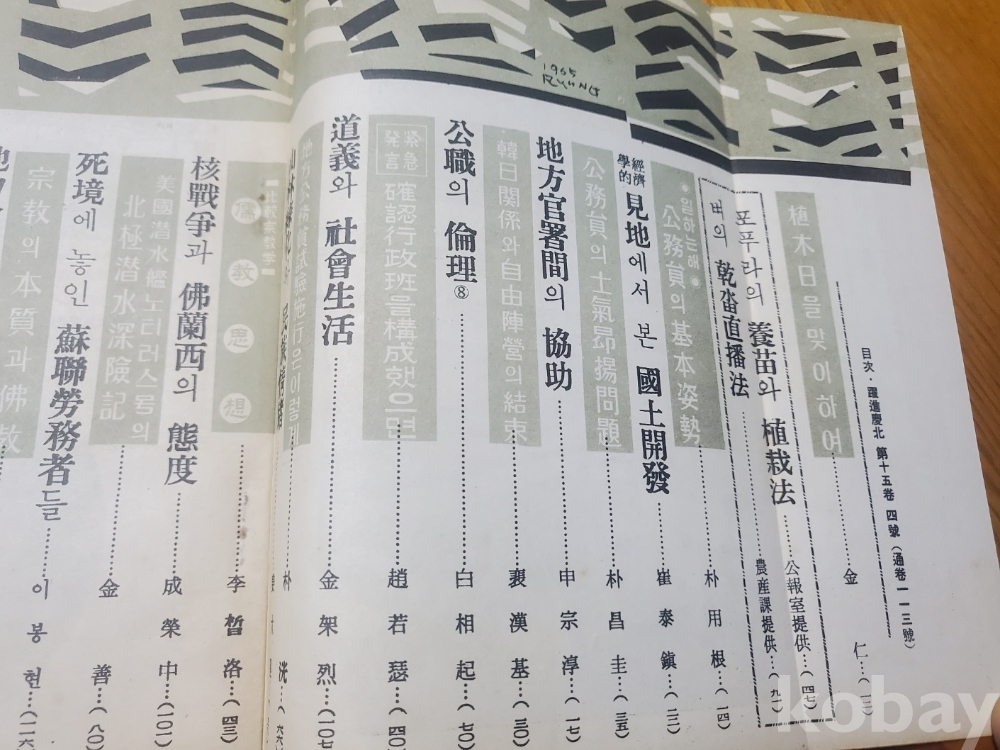 1965
RYUNG
目次·躍進慶北 第十五卷 四號 (通卷一一三號)
植木日을 맞이하여……金 仁…(一三)
포푸라의 養苗와 植栽法……公報室提供…(四七)
벼의 乾畓直播法……農産課提供…(九一)
●일하는해●
公務員의 基本姿勢……朴用根…(一四)
經濟學的 見地에서 본 國土開發……崔泰鎭…(二二)
公務員의 士氣昻揚問題……朴昌圭…(三五)
地方官署間의 協助……申宗淳…(一七)
韓日関係와 自由陣營의 結束……裵漢基…(三○)
公職의 倫理⑧……白相起…(七○)
緊急発言 確認行政班을 構成했으면……趙若瑟…(四○
道義와 社會生活……金架烈…(一○七
地方公務員試驗施行은 이렇게
朴 洸…(六六
【比較宗教学】
儒教思想……李晳洛…(四三)
核戰爭과 佛蘭西의 態度……成榮中…(一○二)
美國潜水艦노티러스号의
北極潜水深険記……金 善…(八○)
死境에 놓인 蘇聯勞務者들……이봉현…(一一六
宗教의 本質과 佛教
kobay